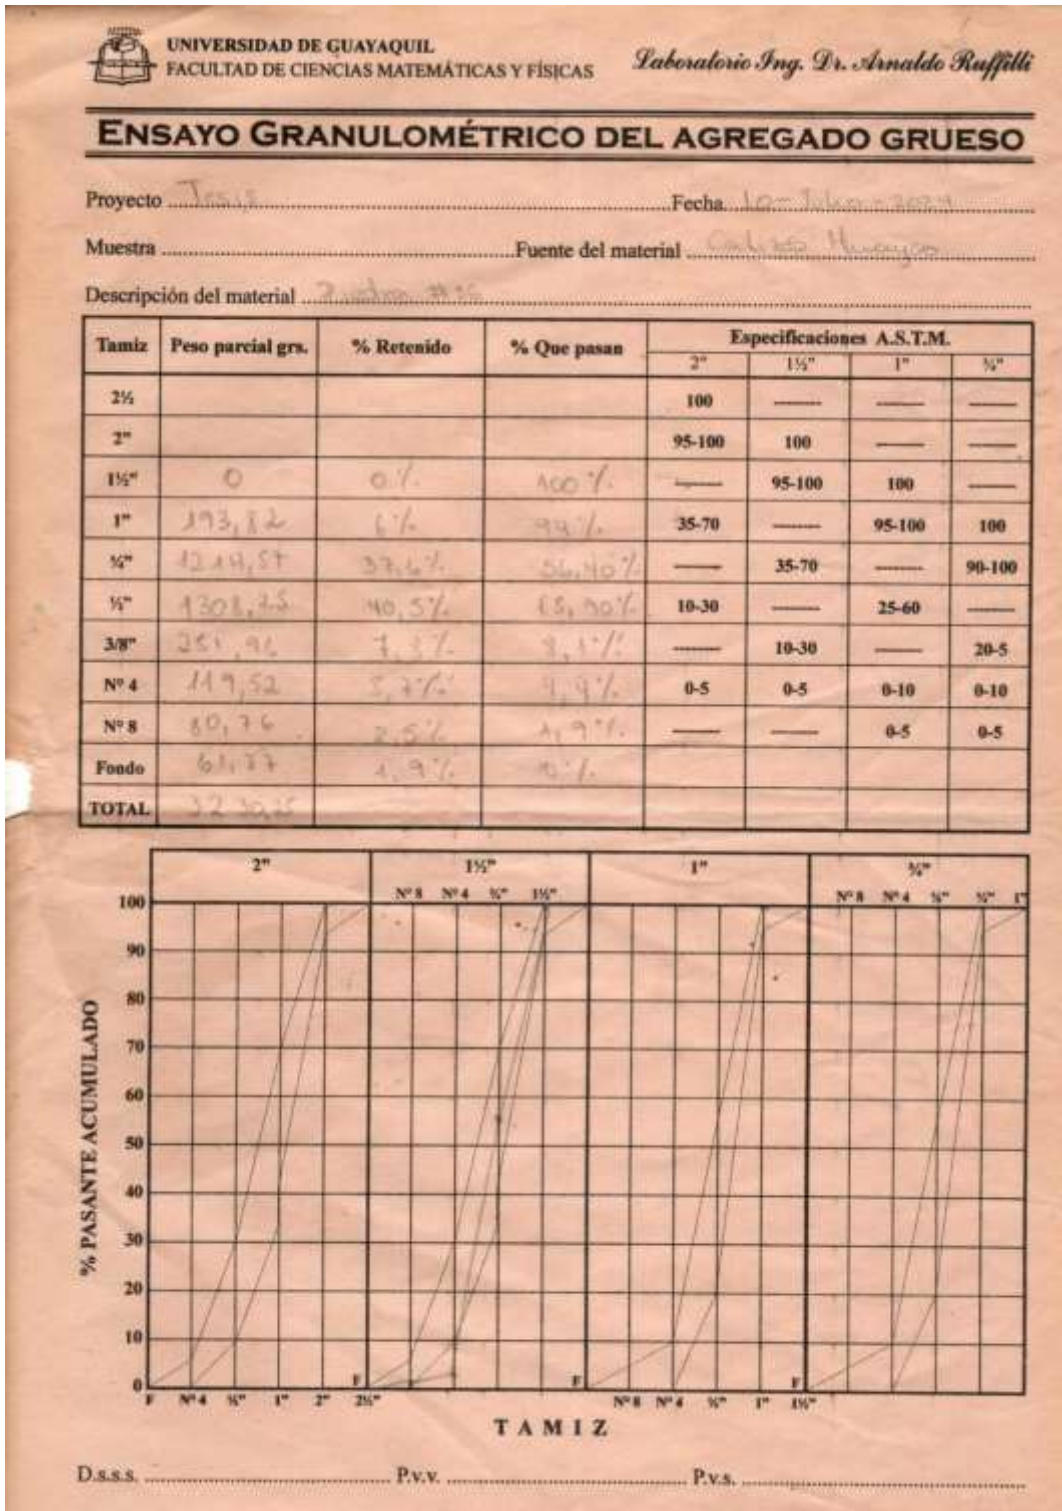 UNIVERSIDAD DE GUAYAQUIL
FACULTAD DE CIENCIAS MATEMÁTICAS Y FÍSICAS
Laboratorio Ing. Dr. Arnaldo Ruffilli
ENSAYO GRANULOMÉTRICO DEL AGREGADO GRUESO
Proyecto Tesis Fecha 10 - Julio - 2024
Muestra Fuente del material Huayco
Descripción del material Piedra
Tamiz Peso parcial grs. % Retenido % Que pasan Especificaciones A.S.T.M.
2" 1½" 1" ¾"
2½ 100 -------- -------- --------
2" 95-100 100 -------- --------
1½" 0 0% 100% -------- 95-100 100 --------
1" 193,82 6% 94% 35-70 -------- 95-100 100
¾" 37,6% 56,40% -------- 35-70 -------- 90-100
½" 1308,25 40,5% 15,90% 10-30 -------- 25-60 --------
3/8" 251,96 8,1% -------- 10-30 -------- 20-5
Nº 4 119,52 0-5 0-5 0-10 0-10
Nº 8 80,76 2,5% 1,9% -------- -------- 0-5 0-5
Fondo 1,9% 0%
TOTAL 3230,25
2" 1½" 1" ¾"
Nº 8 Nº 4 ¾" 1½" Nº 8 Nº 4 ¾" 1"
100
90
80
70
60
50
40
30
20
10
0
% PASANTE ACUMULADO
F F F F
F Nº 4 1" 2" 2½" Nº 8 Nº 4 1" 1½"
TAMIZ
D.s.s.s. P.v.v. P.v.s.